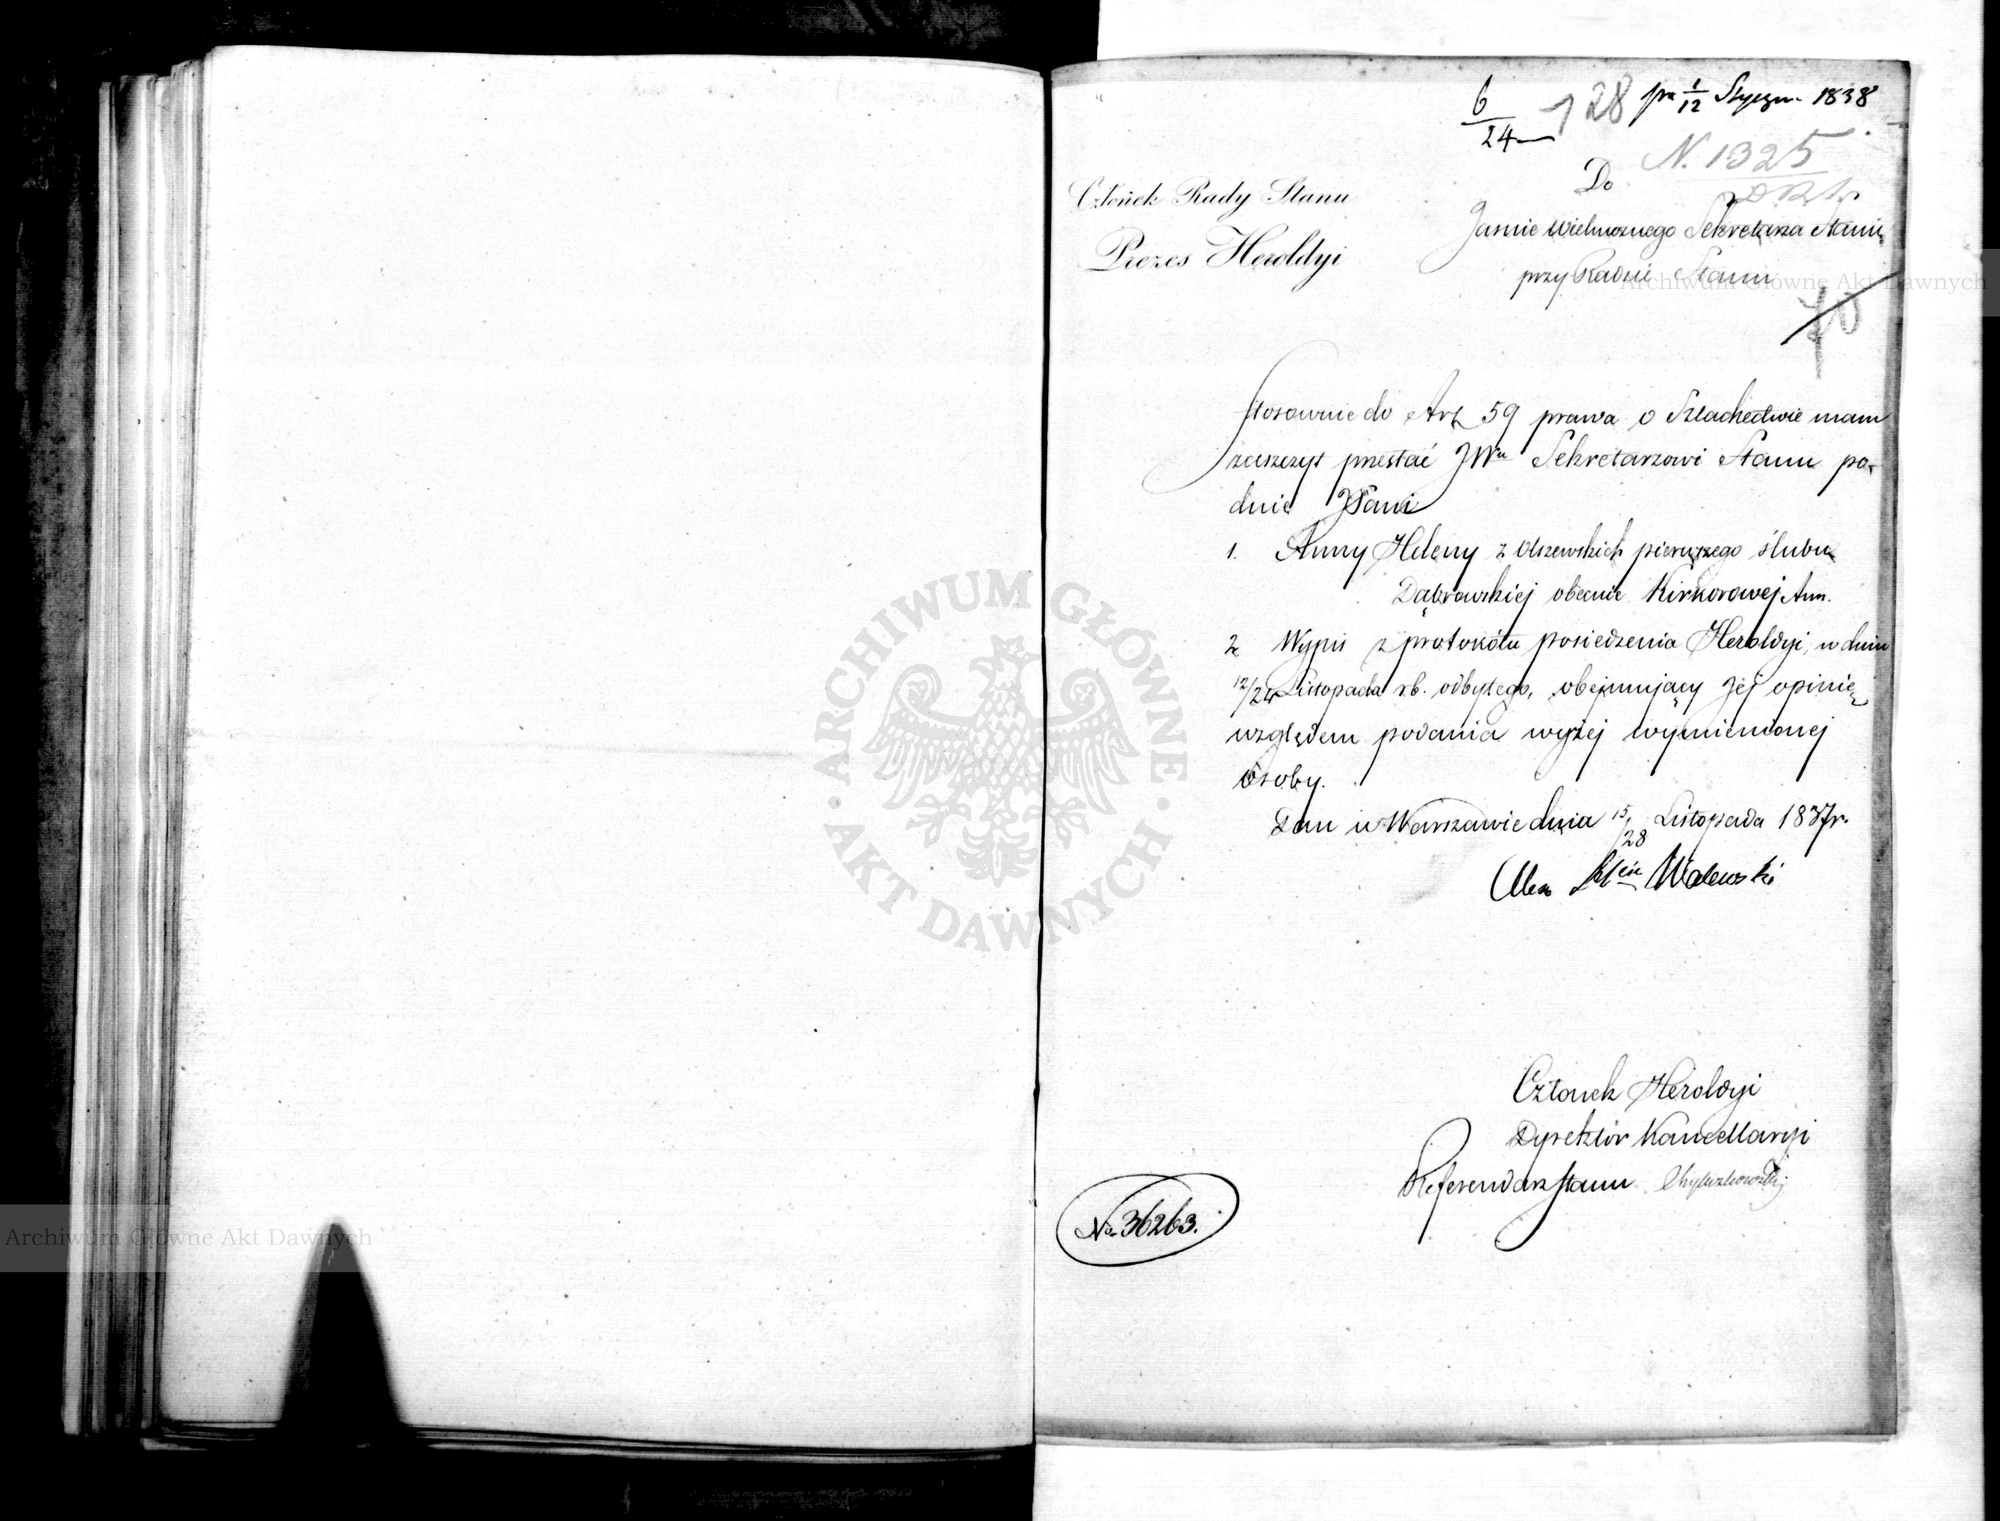 6/24
128
pr 1/12 Styczn. 1838
N. 1325
Członek Rady Stanu
Prezes Heroldyi
Do
Jaśnie Wielmożnego Sekretarza Stanu
przy Radzie Stanu
70
Stosownie do Art 59 prawa o Szlachectwie mam
zaszczyt przesłać JWu Sekretarzowi Stanu po-
danie JPani
1. Anny Heleny z Olszewskich pierwszego ślubu
Dąbrowskiej obecnie Kirkorowej Ann.
2. Wypis z protokółu posiedzenia Heroldyi, w dniu
12/24 Listopada r.b. odbytego, obejmujący Jej opinię
względem podania wyżej wymienionej
osoby.
Dan w Warszawie dnia 15/28 Listopada 1837 r.
Alex Walewski
Członek Heroldyi
Dyrektor Kancellaryi
Referendarz Stanu
No 36263.
Archiwum Główne Akt Dawnych
Archiwum Główne Akt Dawnych
ARCHIWUM GŁÓWNE
AKT DAWNYCH